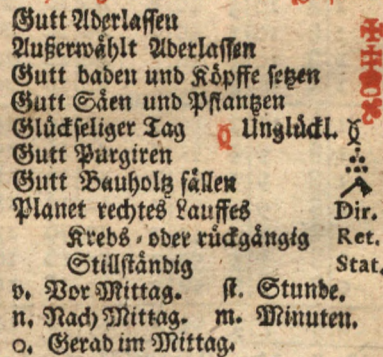 Gutt Aderlassen
Außerwählt Aderlassen
Gutt baden und Köpffe setzen
Gutt Säen und Pflantzen
Glückseliger Tag Unglückl.
Gutt Purgiren
Gutt Bauholtz fällen
Planet rechtes Lauffes Dir.
Krebs - oder rückgängig Ret.
Stillständig Stat.
v. Vor Mittag. st. Stunde.
n. Nach Mittag. m. Minuten.
o. Gerad im Mittag.